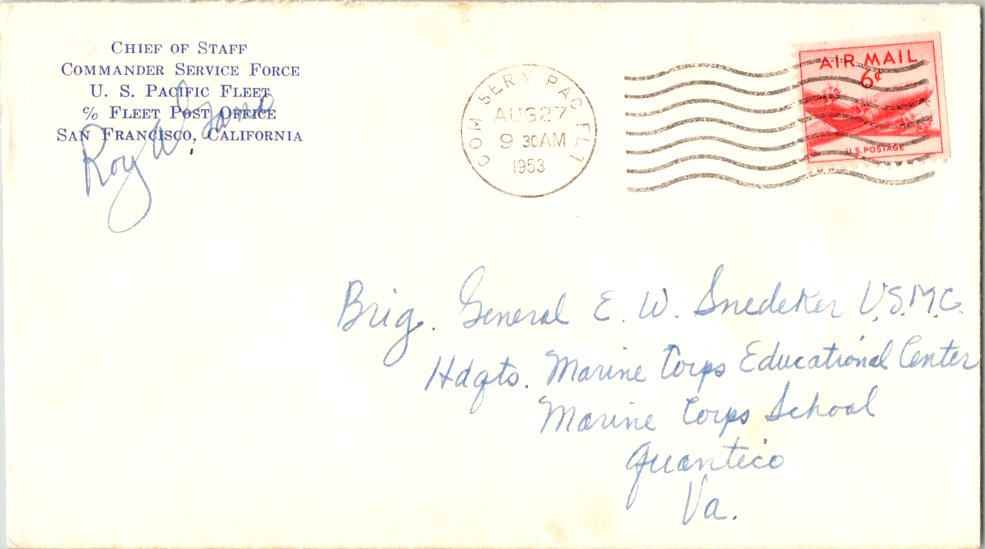 CHIEF OF STAFF
COMMANDER SERVICE FORCE
U. S. PACIFIC FLEET
℅ FLEET POST OFFICE
SAN FRANCISCO, CALIFORNIA
Roy A.
COM SERV PAC FLT
AUG 27
9 30 AM
1953
AIR MAIL
6¢
U.S. POSTAGE
Brig. General E. W. Snedeker U.S.M.C.
Hdqts. Marine Corps Educational Center
Marine Corps School
Quantico
Va.